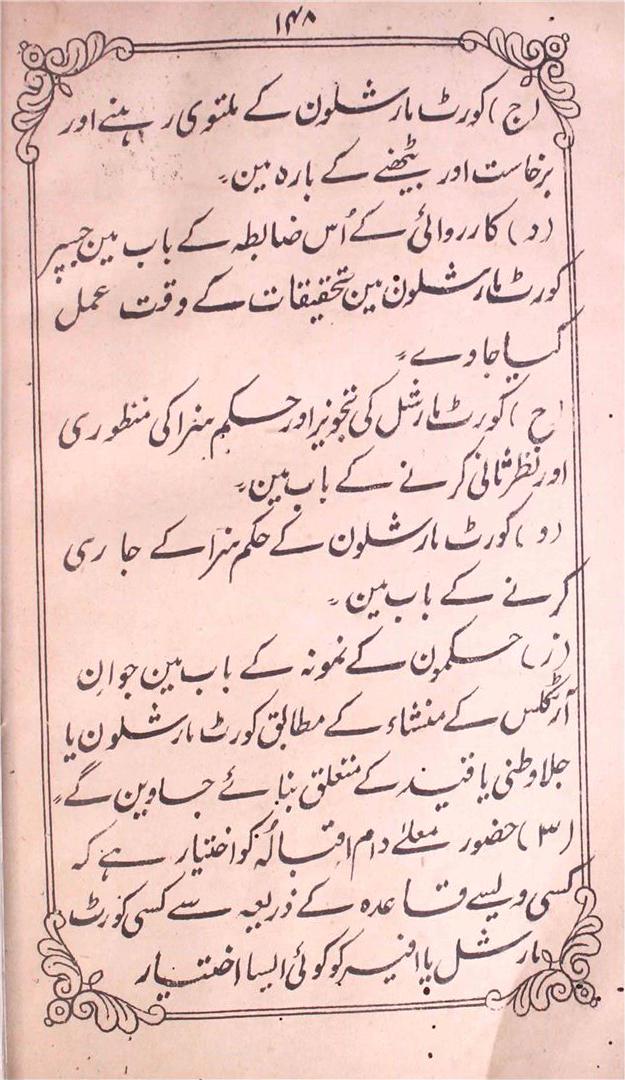 ۱۴۸
(ج) کورٹ مارشلون کے ملتوی رہنے اور
برخاست اور بیٹھنے کے بارہ مین۔
(د) کارروائی کے اُس ضابطہ کے باب مین جسپر
کورٹ مارشلون مین تحقیقات کے وقت عمل
کیا جاوے۔
(ح) کورٹ مارشل کی تجویز اور حکم سزا کی منظوری
اور نظر ثانی کرنے کے باب مین۔
(و) کورٹ مارشلون کے حکم سزا کے جاری
کرنے کے باب مین۔
(ز) حکمون کے نمونہ کے باب مین جو ان
آرٹکلس کے منشاء کے مطابق کورٹ مارشلون یا
جلاوطنی یا قید کے متعلق بنائے جاوین گے۔
(۳) حضور معلےٰ دام اقبالہٗ کو اختیار ہے کہ
کسی ویسے قاعدہ کے ذریعہ سے کسی کورٹ
مارشل یا افیسر کو کوئی ایسا اختیار